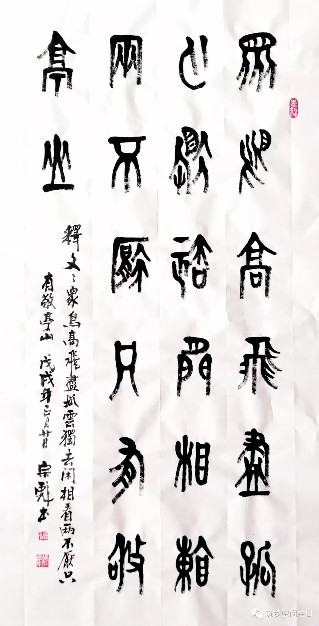 眾鳥高飛盡孤
云獨去閒相看
兩不厭只有敬
亭山
釋文：衆鳥高飛盡孤雲獨去閑相看兩不厭只
有敬亭山 戊戌年正月廿日 宗彪书